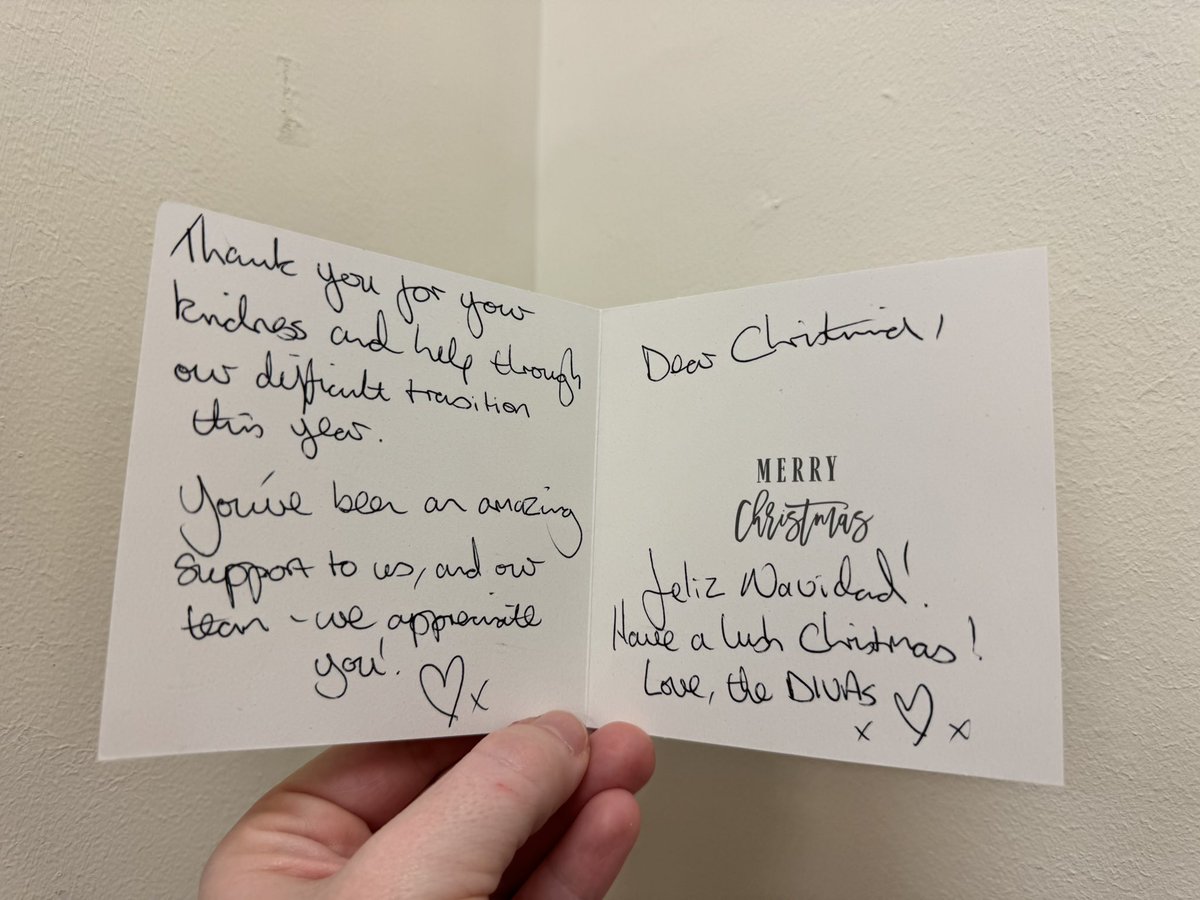 Thank you for your
kindness and help through
our difficult trasition
this year.
You've been an amazing
support to us, and our
team - we appreciate
you!
x
Dear
MERRY
Christmas
Feliz Navidad!
Have a lush Christmas!
Love, the DIVAs
x x